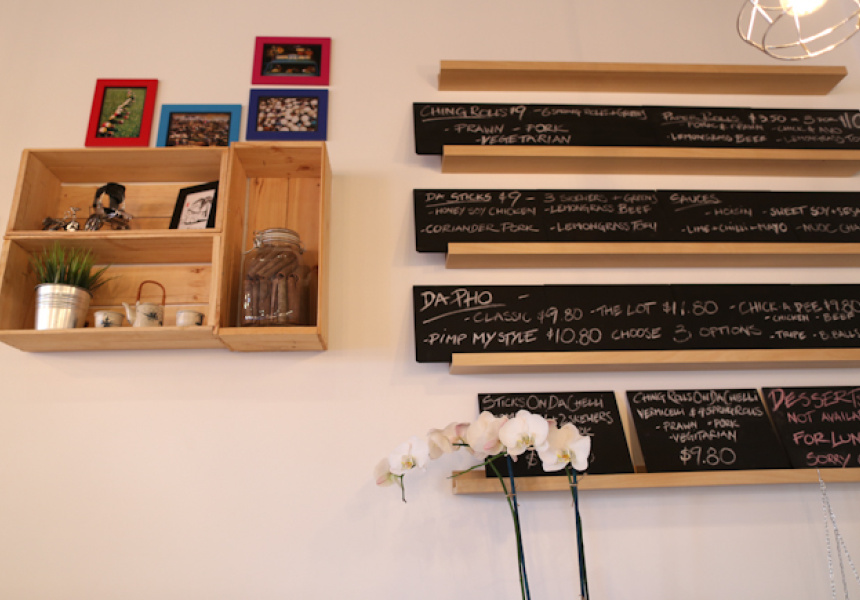 CHING ROLLS $9 - 6 SPRING ROLLS + GREENS
- PRAWN - PORK
- VEGETARIAN
ROLLS $9.50 -
PORK & PRAWN
- LEMONGRASS BEEF - LEMONGRASS
DA STICKS $9 - 3 SKEWERS + GREENS
- HONEY SOY CHICKEN - LEMONGRASS BEEF
- CORIANDER PORK - LEMONGRASS TOFU
SAUCES
- HOISIN - SWEET SOY +
- LIME + CHILLI + MAYO - NUOC CHA
DA PHO -
- CLASSIC $9.80 - THE LOT $11.80 - CHICK A DEE $9.80
- CHICKEN - BEEF
- PIMP MY STYLE $10.80 CHOOSE 3 OPTIONS - TRIPE - B.BALLS
STICKS ON DA CHELLI
+ 2 SKEWERS
$
CHING ROLLS ON DA CHELLI
VERMICELLI & 4 SPRING ROLLS
- PRAWN - PORK
- VEGITARIAN
$9.80
DESSERTS
NOT AVAILA
FOR LUN
SORRY